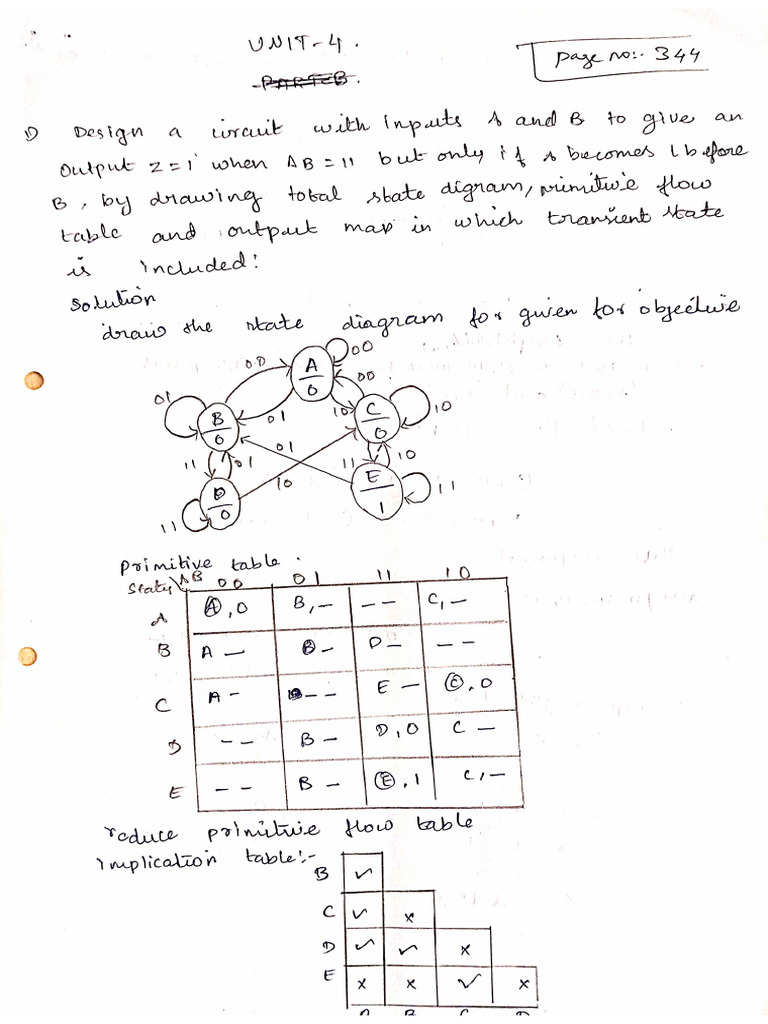 UNIT-4.
Page no:- 344
PART-B.
1) Design a circuit with inputs A and B to give an
output Z=1 when AB=11 but only if A becomes 1 before
B, by drawing total state digram, primitive flow
table and output map in which transient state
is included:
Solution
draw the state diagram for given for objective
00
00 A 0 00
01 B 0 01 10 C 0 10
11 01 01 11 10
D 0 10 E 1 11
11
Primitive table.
States AB 00 01 11 10
A Ⓐ,0 B,- -- C,-
B A - Ⓑ- D- --
C A- -- E - Ⓒ,0
D -- B- D,0 C -
E -- B - Ⓔ,1 C,-
reduce primitive flow table
implication table:-
B ✓
C ✓ x
D ✓ ✓ x
E x x ✓ x
A B C D